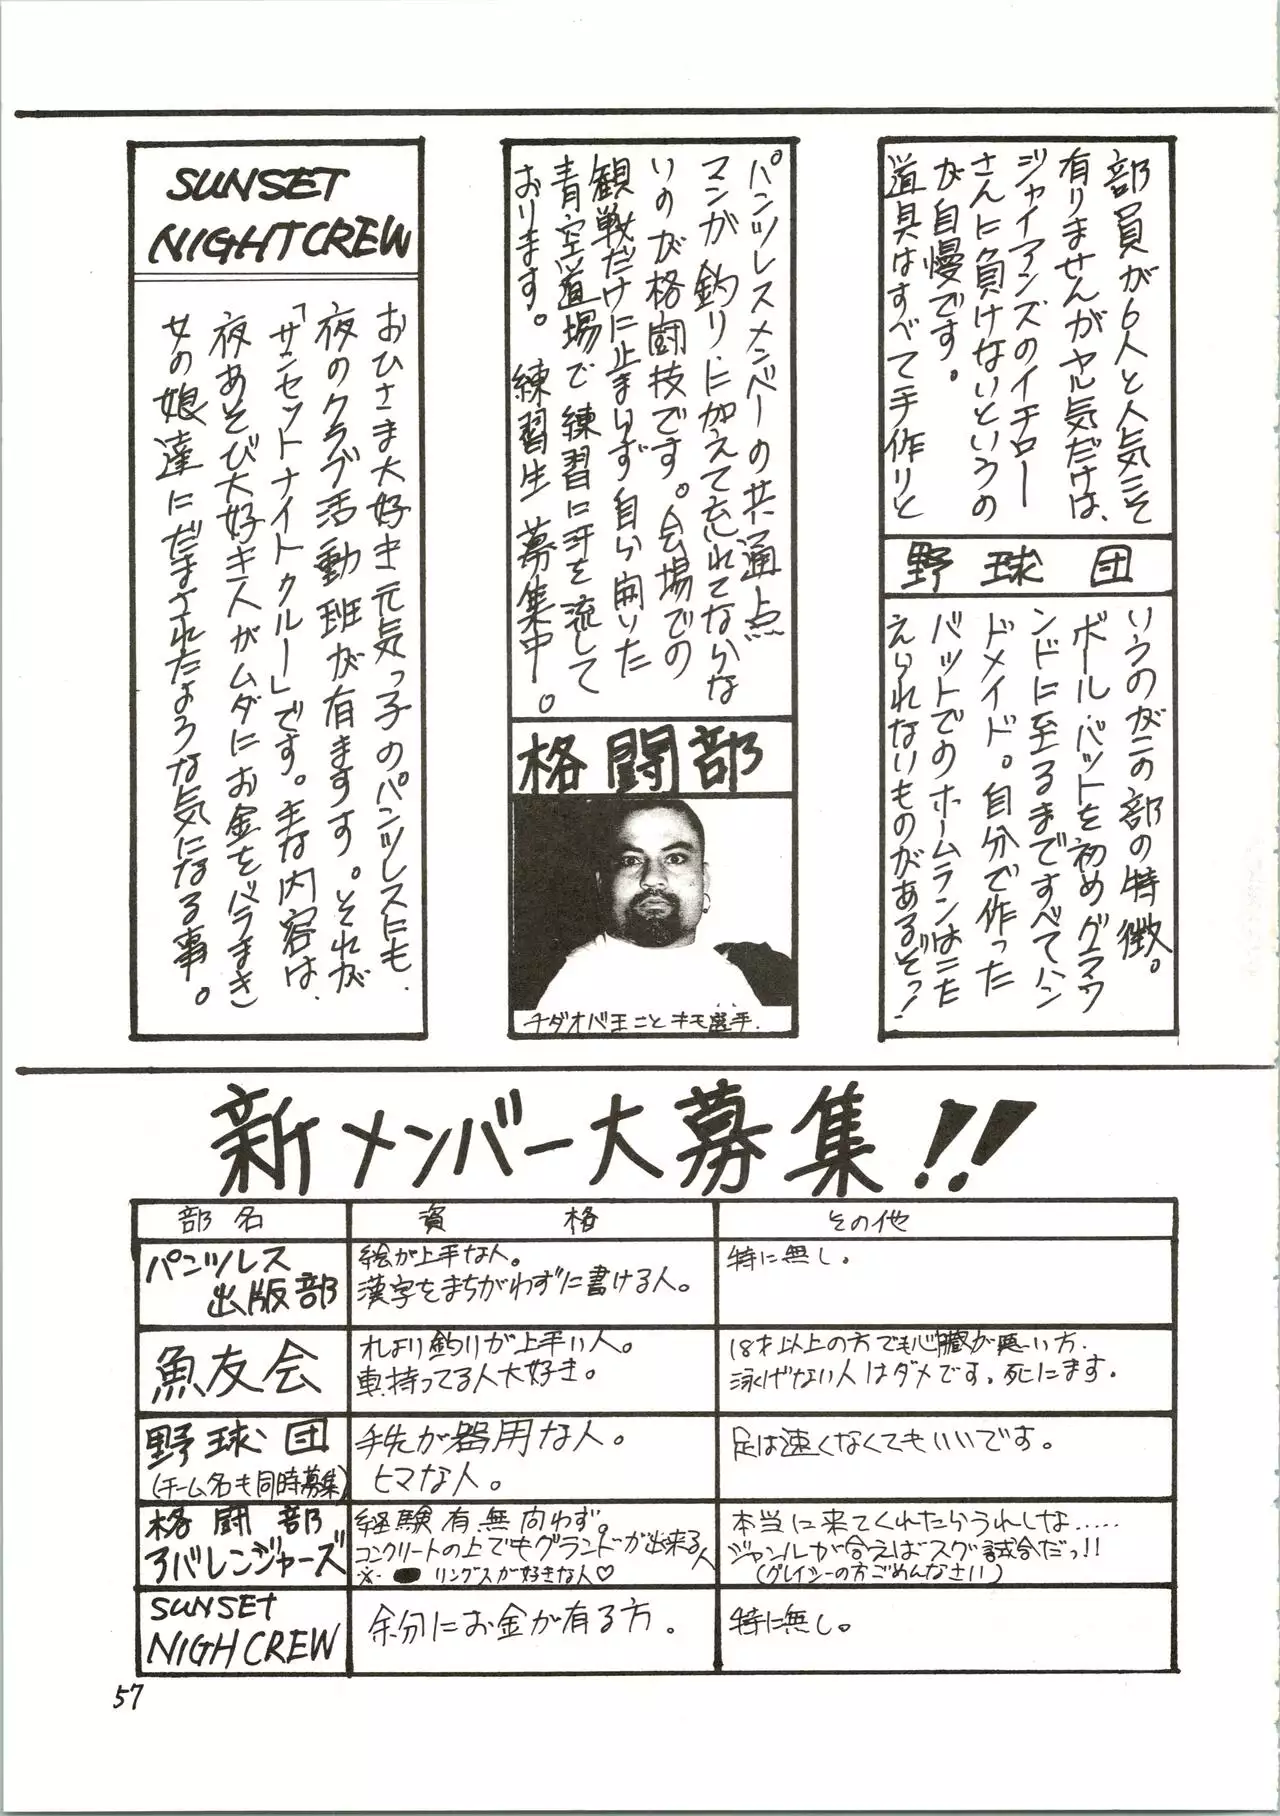 部員が6人と人気こそ
有りませんがヤル気だけは、
ジャイアンズのイチロー
さんに負けないというの
が自慢です。
道具はすべて手作りと
野球団
いうのがこの部の特徴。
ボールバットを初めグラウ
ンドに至るまですべてハン
ドメイド。自分で作った
バットでのホームランはこた
えられないものがあるぞっ!
パンツレスメンバーの共通点
マンが釣りに加えて忘れてならな
いのが格闘技です。会場での
観戦だけに止まらず自ら開いた
青空道場で練習に汗を流して
おります。練習生募集中。
格闘部
チダオバ王ことキモ選手.
SUNSET
NIGHTCREW
おひさま大好き元気っ子のパンツレスにも、
夜のクラブ活動班が有ますす。それが
「サンセットナイトクルー」です。主な内容は、
夜あそび大好き人がムダにお金をバラまき
女の娘達にだまされたような気になる事。
新メンバー大募集!!
部名 資格 その他
パンツレス
出版部
絵が上手な人。
漢字をまちがわずに書ける人。
特に無し。
魚友会
れより釣りが上手い人。
車持ってる人大好き。
18才以上の方でも心臓が悪い方.
泳げない人はダメです。死にます。
野球団
(チーム名も同時募集)
手先が器用な人。
ヒマな人。
足は速くなくてもいいです。
格闘部
アバレンジャーズ
経験有無向わず。
コンクリートの上でもグランドが出来る人
※ リングスが好きな人♡
本当に来てくれたらうれしな.....
ジャンルが合えばスグ試合だっ!!
(グレイシーの方ごめんなさい)
SUNSET
NIGHCREW
余分にお金が有る方。
特に無し。
57